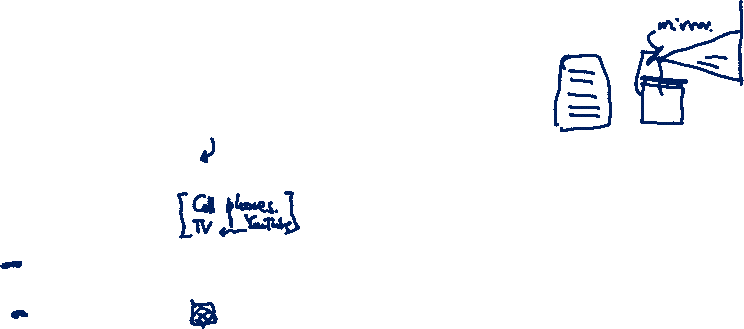 mirror.
Cell phones.
TV YouTube